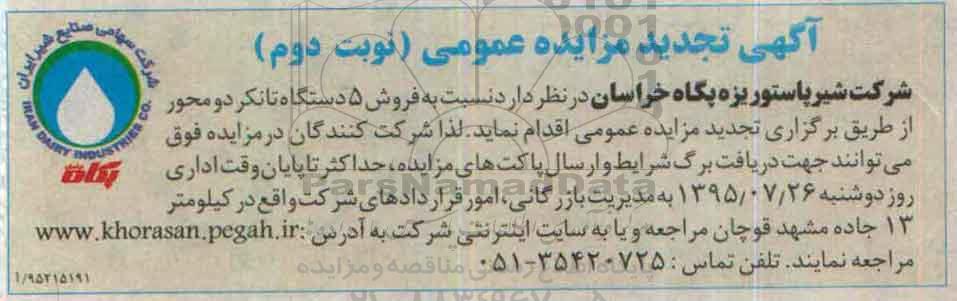 آگهی تجدید مزایده عمومی (نوبت دوم)
شرکت شیر پاستوریزه پگاه خراسان در نظر دارد نسبت به فروش ۵ دستگاه تانکر دو محور
از طریق برگزاری تجدید مزایده عمومی اقدام نماید. لذا شرکت کنندگان در مزایده فوق
می توانند جهت دریافت برگ شرایط و ارسال پاکت های مزایده، حداکثر تا پایان وقت اداری
روز دوشنبه ۱۳۹۵/۰۷/۲۶ به مدیریت بازرگانی، امور قراردادهای شرکت واقع در کیلومتر
۱۳ جاده مشهد قوچان مراجعه و یا به سایت اینترنتی شرکت به آدرس: www.khorasan.pegah.ir
مراجعه نمایند. تلفن تماس: ۳۵۴۲۰۷۲۵-۰۵۱
۱/۹۵۲۱۵۱۹۱
شرکت سهامی صنایع شیر ایران
IRAN DAIRY INDUSTRIES CO.
پگاه
ParsNamadData